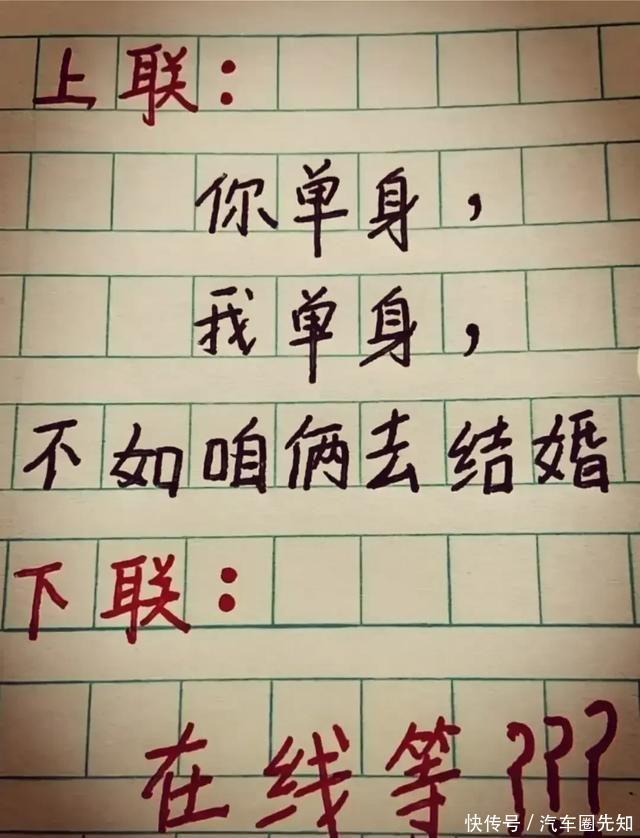 上联：
你单身，
我单身，
不如咱俩去结婚
下联：
在线等???
快传号/汽车圈先知